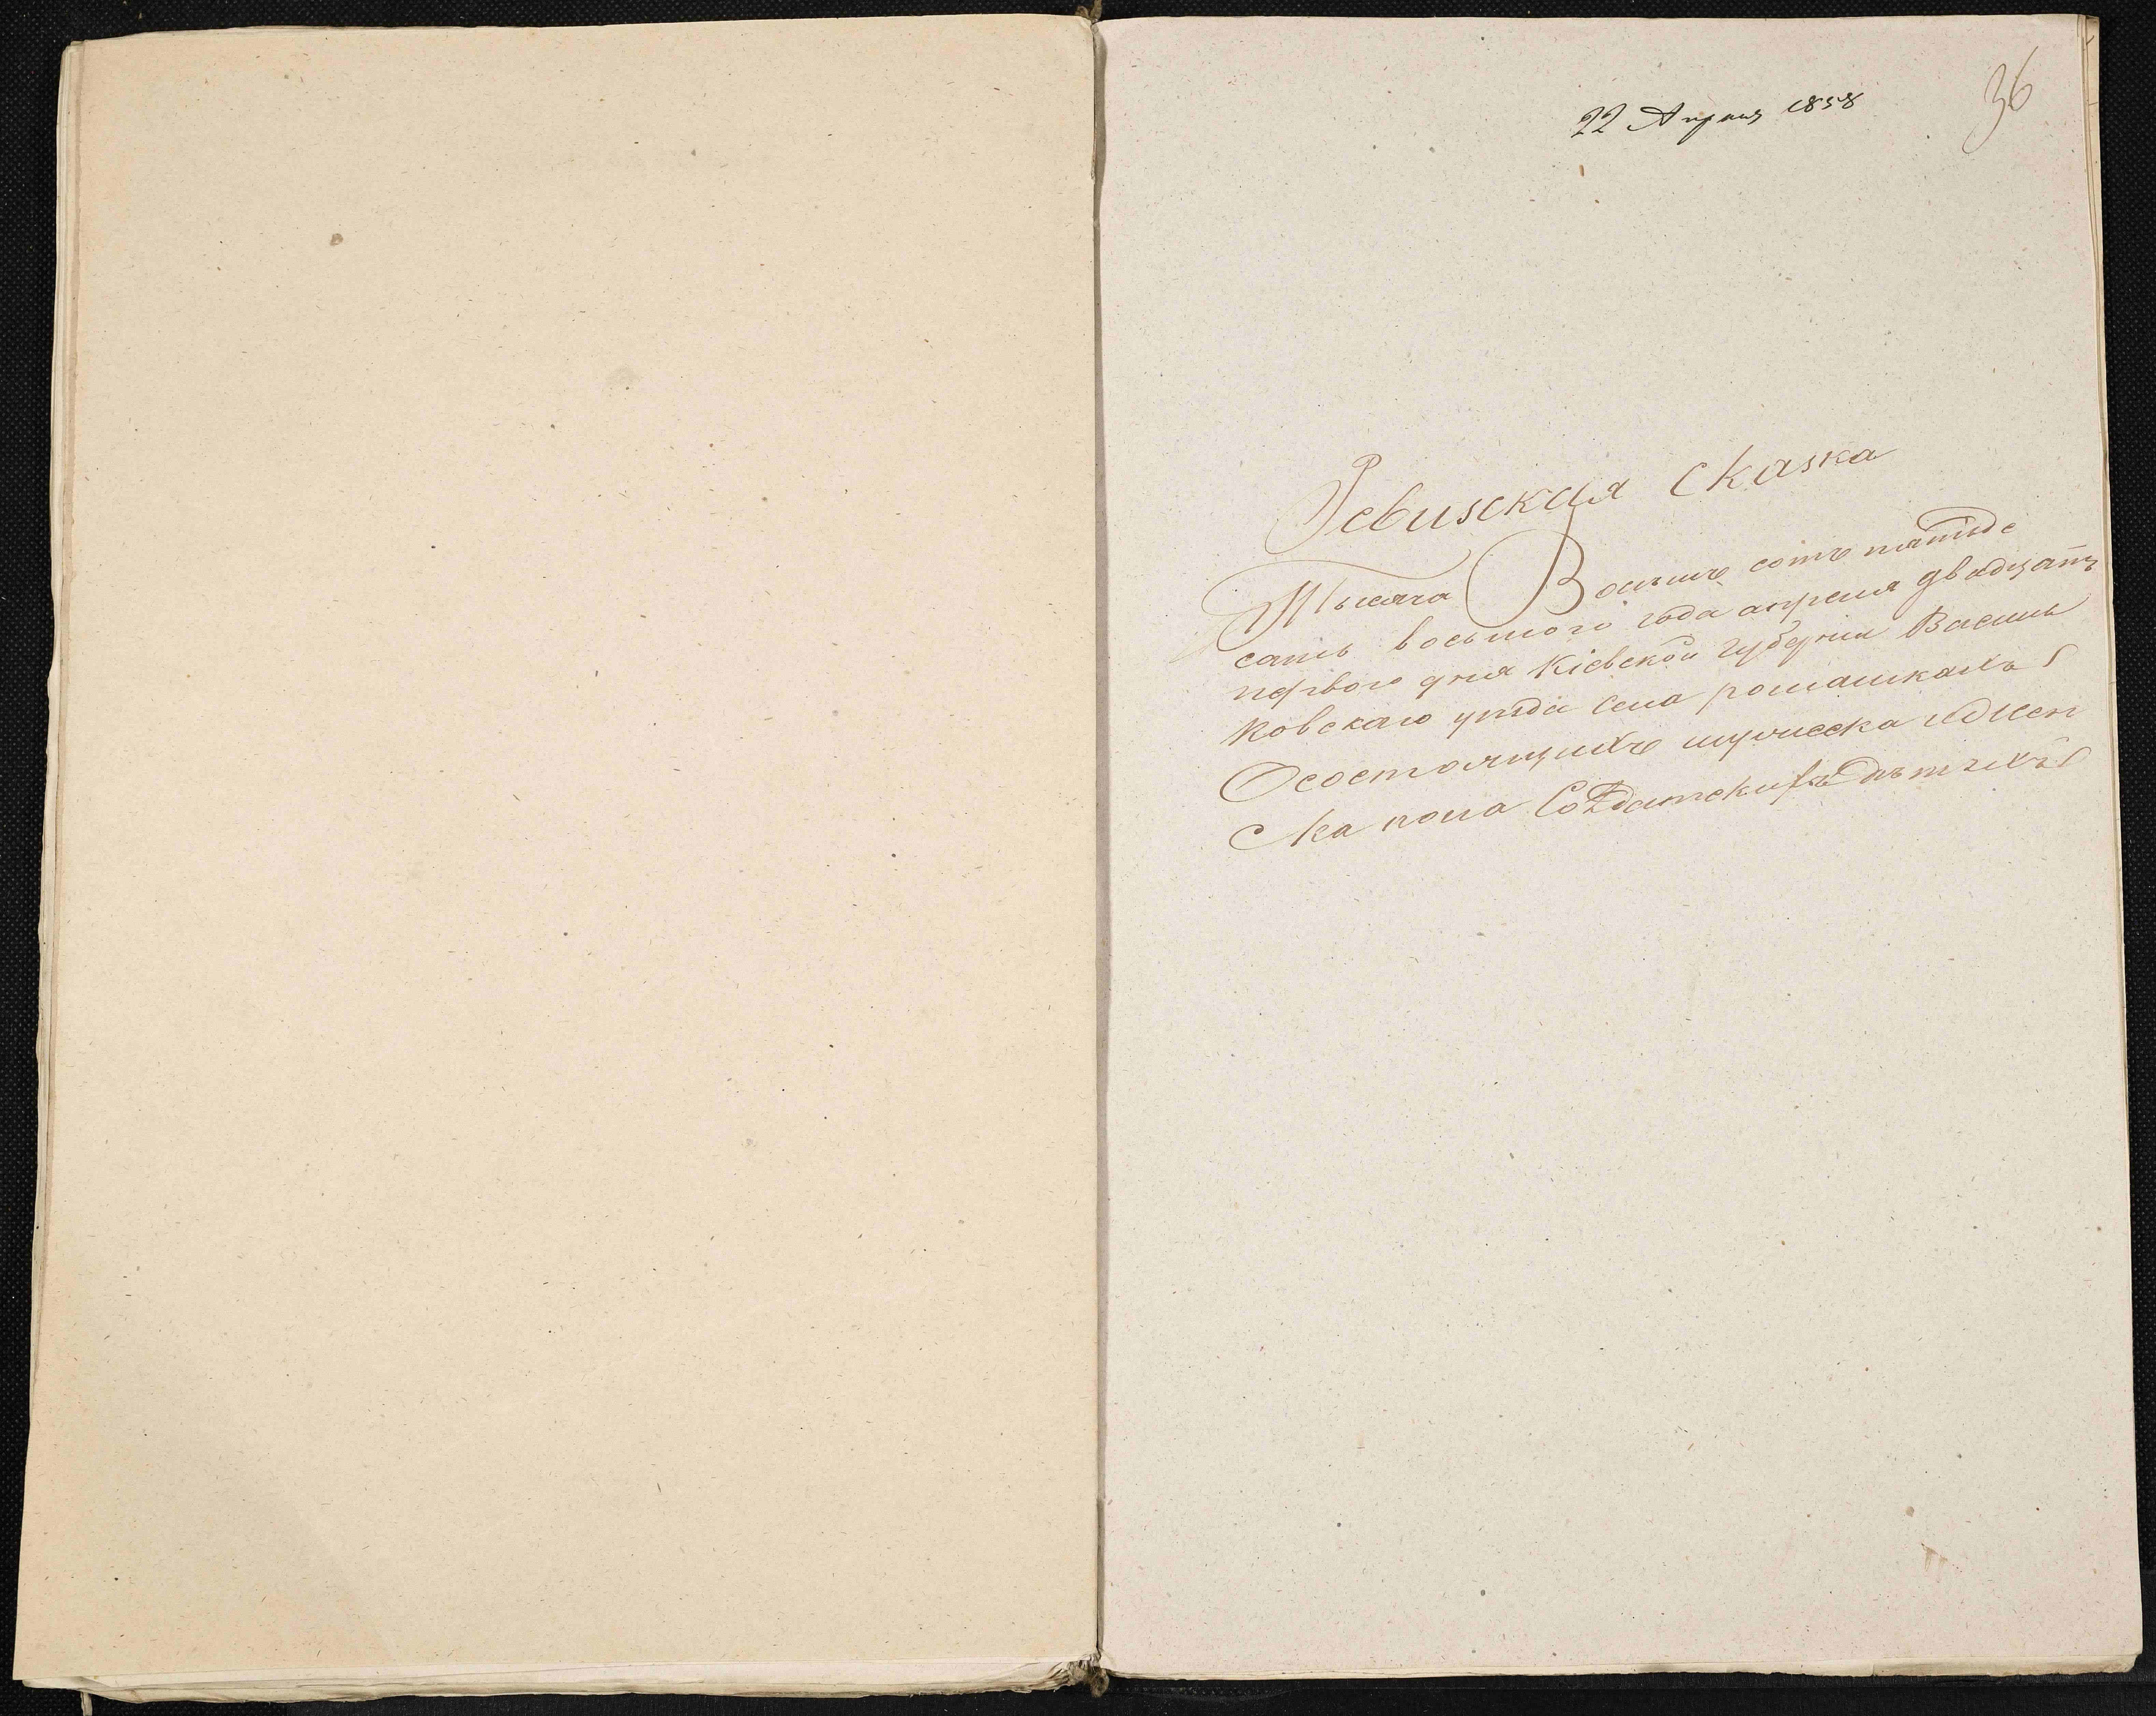 22 Апреля 1858
36
Ревизская Сказка
Тысяча Восемъ сотъ пятьде
сятъ восьмого года апреля двадцать
первого дня Кіевской губерніи Василь
ковского уѣзда села ромашкахъ
О состоящихъ мужеска и женс
ка пола Солдатскихъ дѣтяхъ